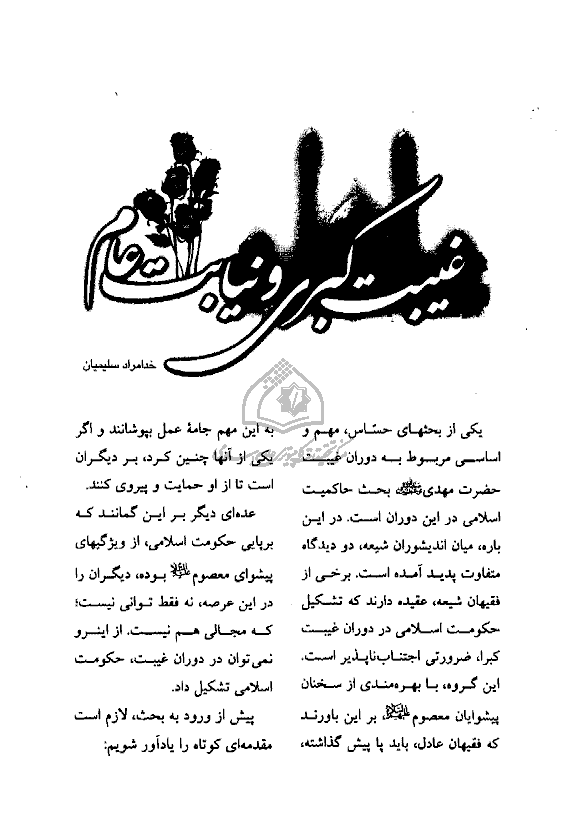 غیبت کبری و نیابت عام
خدامراد سلیمیان
یکی از بحثهای حسّاس، مهم و
اساسی مربوط به دوران غیبت
حضرت مهدی بحث حاکمیت
اسلامی در این دوران است. در این
باره، میان اندیشوران شیعه، دو دیدگاه
متفاوت پدید آمده است. برخی از
فقیهان شیعه، عقیده دارند که تشکیل
حکومت اسلامی در دوران غیبت
کبرا، ضرورتی اجتناب‌ناپذیر است.
این گروه، با بهره‌مندی از سخنان
پیشوایان معصوم بر این باورند
که فقیهان عادل، باید پا پیش گذاشته،
به این مهم جامهٔ عمل بپوشانند و اگر
یکی از آنها چنین کرد، بر دیگران
است تا از او حمایت و پیروی کنند.
عده‌ای دیگر بر این گمانند که
برپایی حکومت اسلامی، از ویژگیهای
پیشوای معصوم بوده، دیگران را
در این عرصه، نه فقط توانی نیست؛
که مجالی هم نیست. از اینرو
نمی‌توان در دوران غیبت، حکومت
اسلامی تشکیل داد.
پیش از ورود به بحث، لازم است
مقدمه‌ای کوتاه را یادآور شویم: